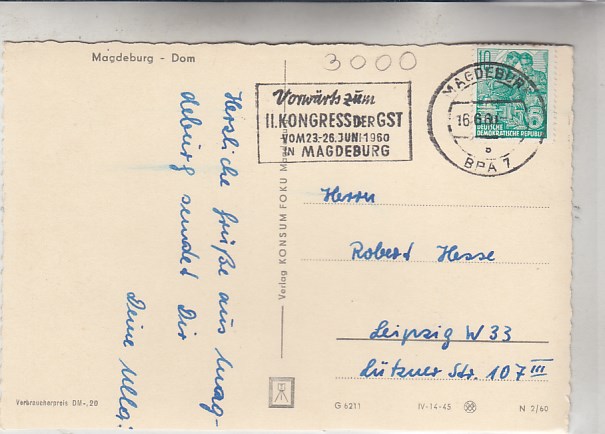 Magdeburg - Dom
3000
Vorwärts zum
II. KONGRESS DER GST
VOM 23.-26. JUNI 1960
IN MAGDEBURG
MAGDEBURG
16.6.60
BPA 7
10
DEUTSCHE
DEMOKRATISCHE REPUBLIK
Herzliche Grüße aus Mag-
deburg sendet Dir
Deine
Verlag KONSUM FOKU
Herrn
Robert Hesse
Leipzig W 33
Lützner Str. 107 III
Verbraucherpreis DM -,20
G 6211
IV-14-45
N 2/60